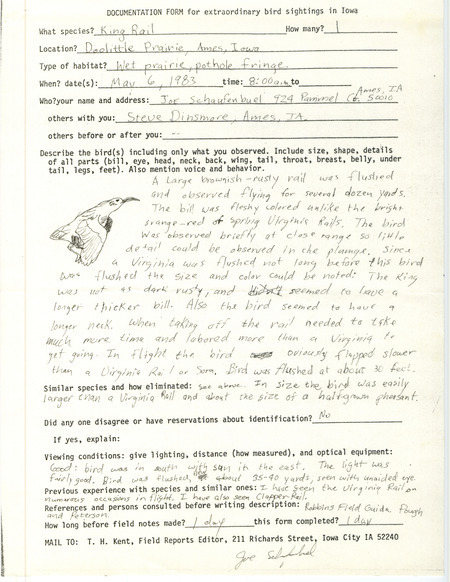 DOCUMENTATION FORM for extraordinary bird sightings in Iowa
What species? King Rail How many? 1
Location? Doolittle Prairie, Ames, Iowa
Type of habitat? Wet prairie, pothole fringe.
When? date(s): May 6, 1983 time: 8:00a.m. to
Who? your name and address: Joe Schaufenbuel 924 Pammel Ct. Ames, IA 50010
others with you: Steve Dinsmore, Ames, IA.
others before or after you: —
Describe the bird(s) including only what you observed. Include size, shape, details
of all parts (bill, eye, head, neck, back, wing, tail, throat, breast, belly, under
tail, legs, feet). Also mention voice and behavior.
A Large brownish-rusty rail was flushed
and observed flying for several dozen yards.
The bill was fleshy colored unlike the bright
orange-red of Spring Virginia Rails. The bird
was observed briefly at close range so little
detail could be observed in the plumage. Since
a Virginia was flushed not long before this bird
was flushed the size and color could be noted: The King
was not as dark rusty, and seemed to have a
longer thicker bill. Also the bird seemed to have a
longer neck. When taking off the rail needed to take
much more time and labored more than a Virginia to
get going. In flight the bird obviously flapped slower
than a Virginia Rail or Sora. Bird was flushed at about 30 feet.
Similar species and how eliminated: see above. In size the bird was easily
larger than a Virginia Rail and about the size of a half-grown pheasant.
Did any one disagree or have reservations about identification? No
If yes, explain:
Viewing conditions: give lighting, distance (how measured), and optical equipment:
Good: bird was in south with sun in the east. The light was
fairly good. Bird was flushed, at about 35-40 yards, seen with unaided eye.
Previous experience with species and similar ones: I have seen the Virginia Rail on
numerous occasions in flight. I have also seen Clapper Rail.
References and persons consulted before writing description: Robbins Field Guide Pough
and Peterson.
How long before field notes made? 1 day this form completed? 1 day
MAIL TO: T. H. Kent, Field Reports Editor, 211 Richards Street, Iowa City IA 52240
Joe